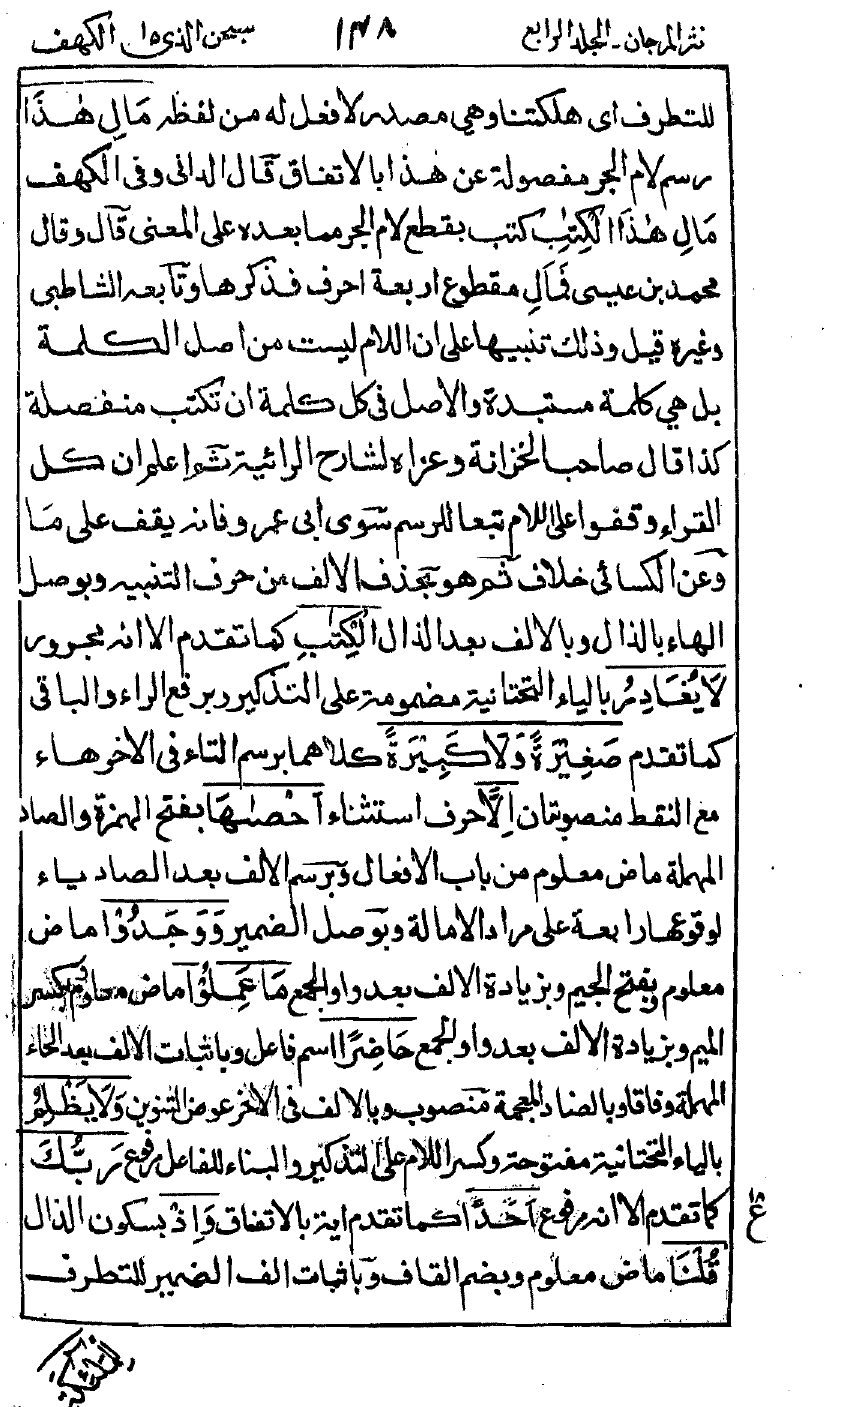 نثر المرجان ـ المجلد الرابع ١٤٨ سبحن الذى ١٥ الكهف
للتطرف اى هلكتنا وهي مصدر لا فعل له من لفظه مَالِ هٰذَا
رسم لام الجر مفصولة عن هٰذا بالاتفاق قال الدانى وفى الكهف
مَالِ هٰذَا الْكِتٰبِ كتب بقطع لام الجر مما بعده على المعنى قال وقال
محمد بن عيسى فَمَالِ مقطوع اربعة احرف فذكرها وتابعه الشاطبى
وغيره قيل وذلك تنبيها على ان اللام ليست من اصل الكلمة
بل هي كلمة مستبدة والاصل فى كل كلمة ان تكتب منفصلة
كذا قال صاحب الخزانة وعزاه لشارح الرائية ثم اعلم ان كل
القراء وقفوا على اللام تبعا للرسم سوى أبى عمرو فانه يقف على مَا
وعن الكسائى خلاف ثم هو بحذف الالف من حرف التنبيه وبوصل
الهاء بالذال وبالالف بعد الذال الْكِتٰبِ كما تقدم الا انه مجرور
لَا يُغَادِرُ بالياء التحتانية مضمومة على التذكير وبرفع الراء والباقى
كما تقدم صَغِيْرَةً وَلَا كَبِيْرَةً كلاهما برسم التاء فى الاخر هاء
مع النقط منصوبتان اِلَّا حرف استثناء اَحْصٰىهَا بفتح الهمزة والصاد
المهملة ماض معلوم من باب الافعال وبرسم الالف بعد الصاد ياء
لوقوعها رابعة على مراد الامالة وبوصل الضمير وَوَجَدُوْا ماض
معلوم وبفتح الجيم وبزيادة الالف بعد واو الجمع مَا عَمِلُوْا ماض معلوم بكسر
الميم وبزيادة الالف بعد واو الجمع حَاضِرًا اسم فاعل وباثبات الالف بعد الحاء
المهملة وفاقا وبالضاد المعجمة منصوب وبالالف فى الاخر عوض التنوين وَلَا يَظْلِمُ
بالياء التحتانية مفتوحة وكسر اللام على التذكير والبناء للفاعل مرفوع رَبُّكَ
كما تقدم الا انه مرفوع اَحَدًا كما تقدم اية بالاتفاق وَاِذْ بسكون الذال
قُلْنَا ماض معلوم وبضم القاف وباثبات الف الضمير للتطرف